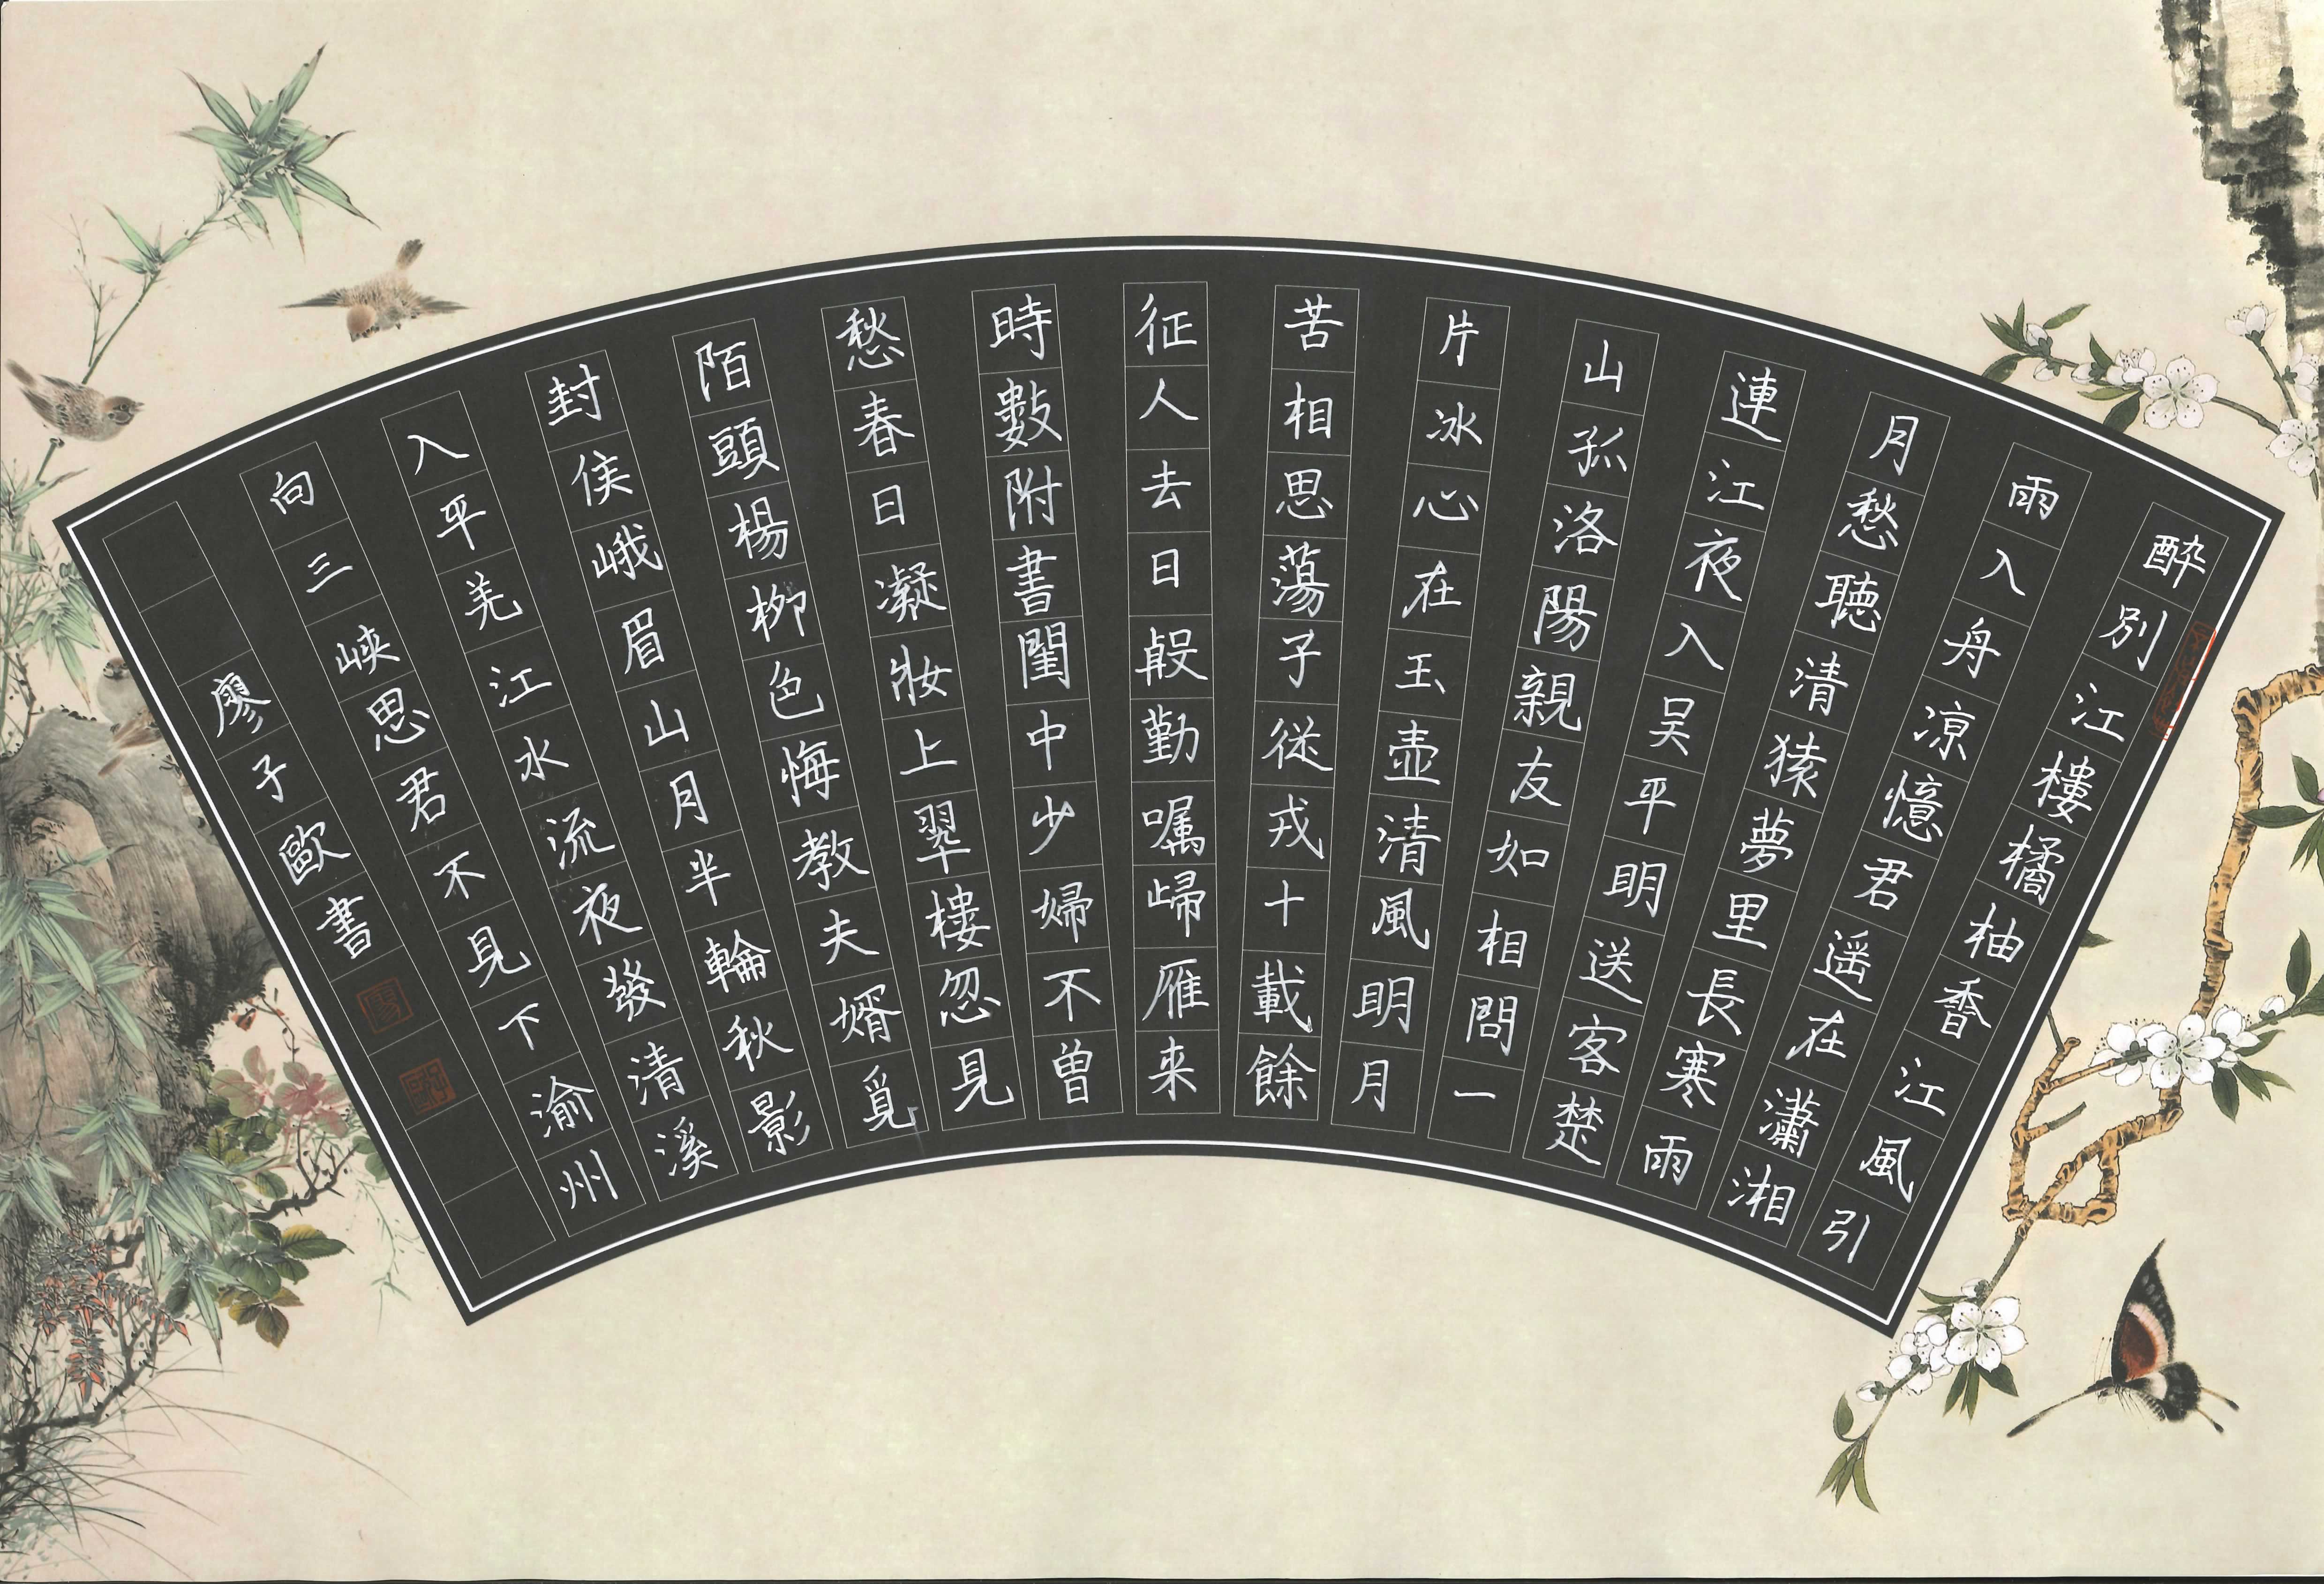 醉別江樓橘柚香江風引
雨入舟凉憶君遥在瀟湘
月愁聽清猿夢里長寒雨
連江夜入吴平明送客楚
山孤洛陽親友如相問一
片冰心在玉壺清風明月
苦相思蕩子從戎十載餘
征人去日殷勤嘱歸雁来
時數附書閨中少婦不曾
愁春日凝妝上翠樓忽見
陌頭楊柳色悔教夫婿覓
封侯峨眉山月半輪秋影
入平羌江水流夜發清溪
向三峽思君不見下渝州
廖子歐書